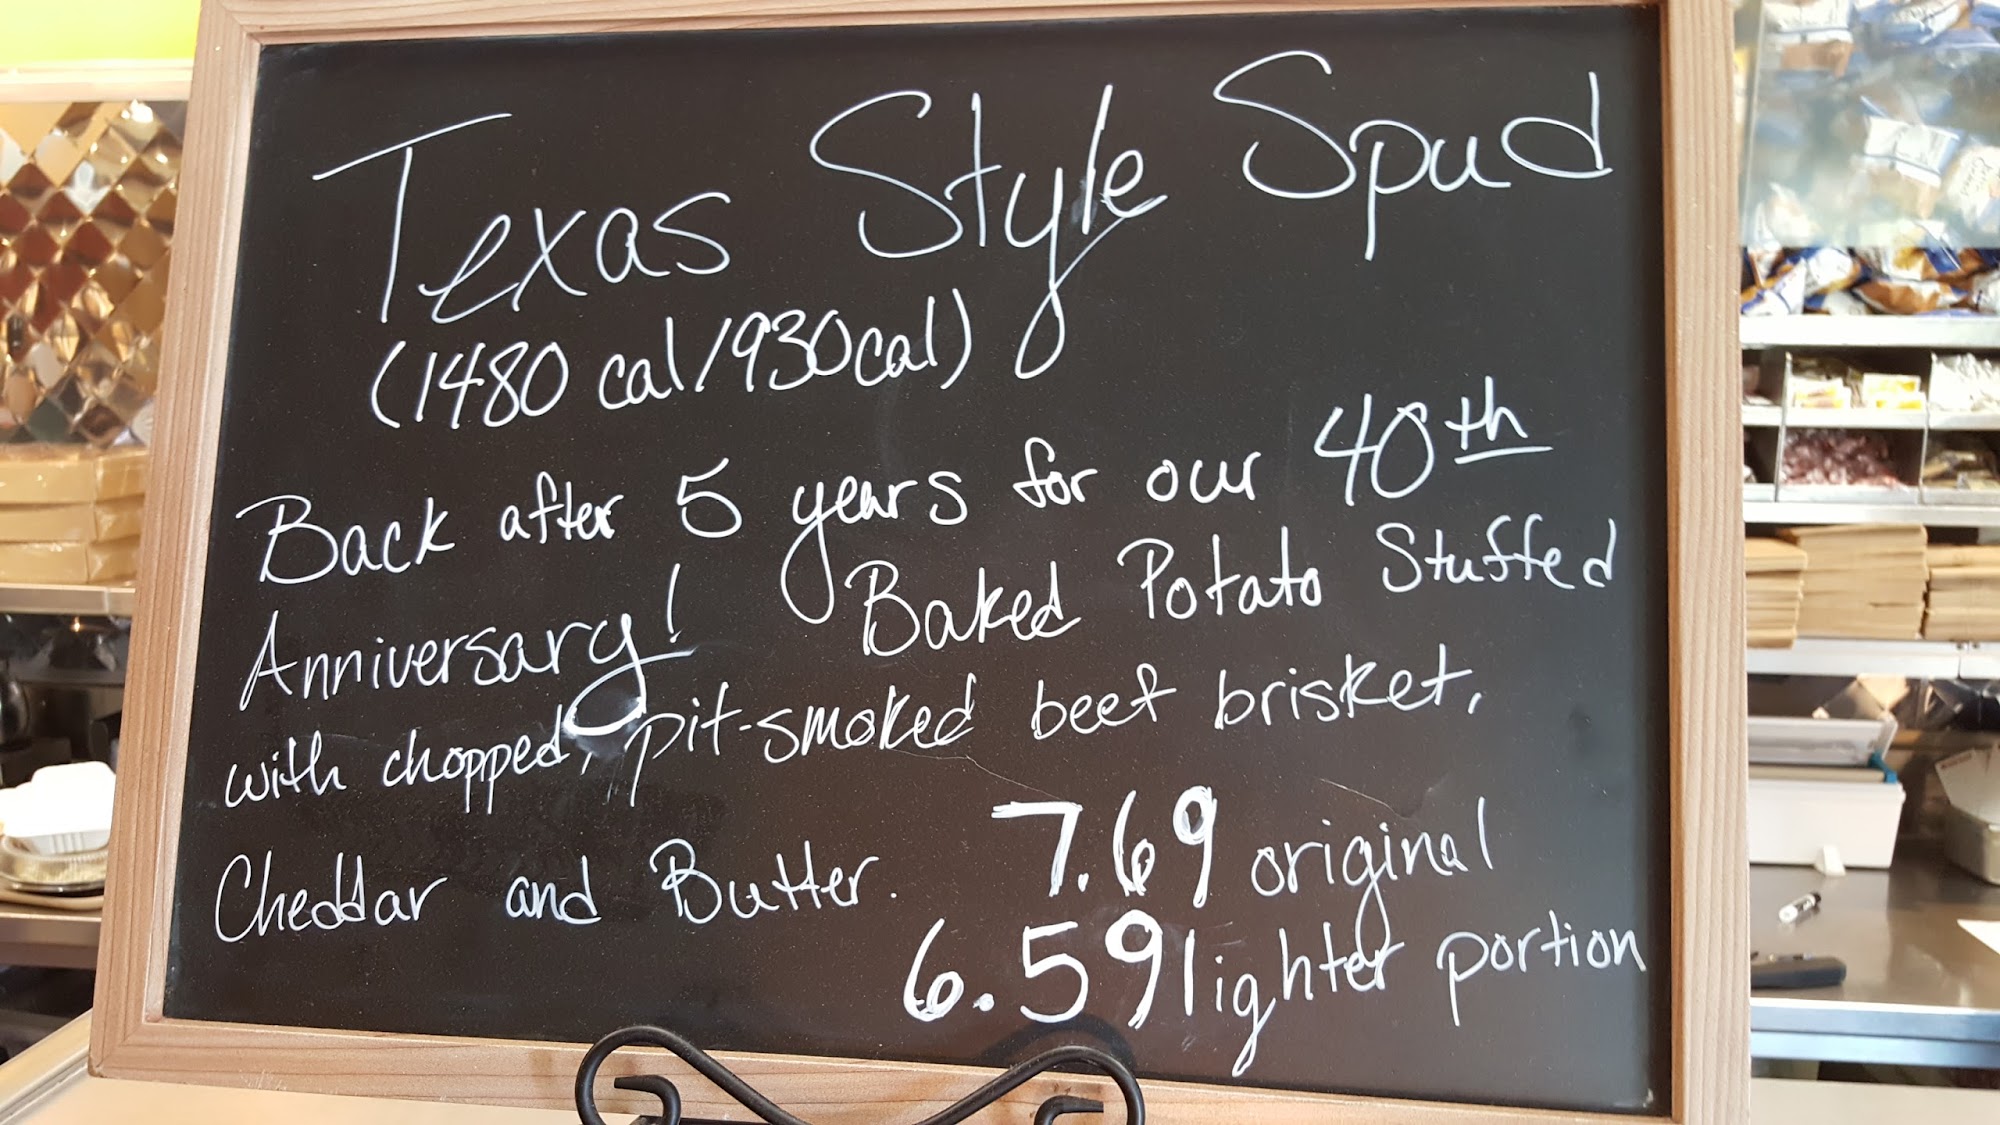 Texas Style Spud
(1480 cal/930cal)
Back after 5 years for our 40th
Anniversary! Baked Potato Stuffed
with chopped, pit-smoked beef brisket,
Cheddar and Butter. 7.69 original
6.59 lighter portion